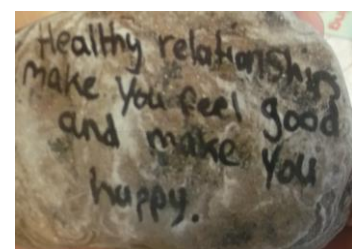 Healthy relationships
make you feel good
and make you
happy.